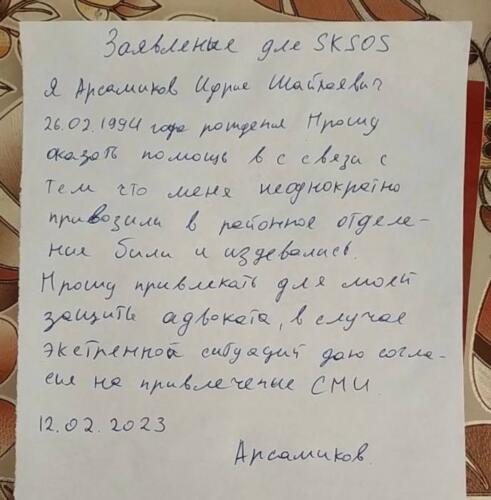 Заявление для SKSOS
Я Арсамиков Идрис Шайхаевич
26.02.1994 года рождения Прошу
оказать помощь в с связи с
тем что меня неоднократно
привозили в районное отделе-
ние били и издевались.
Прошу привлекать для моей
защиты адвоката, в случае
экстренной ситуаций даю согла-
сия на привлечение СМИ
12.02.2023
Арсамиков.